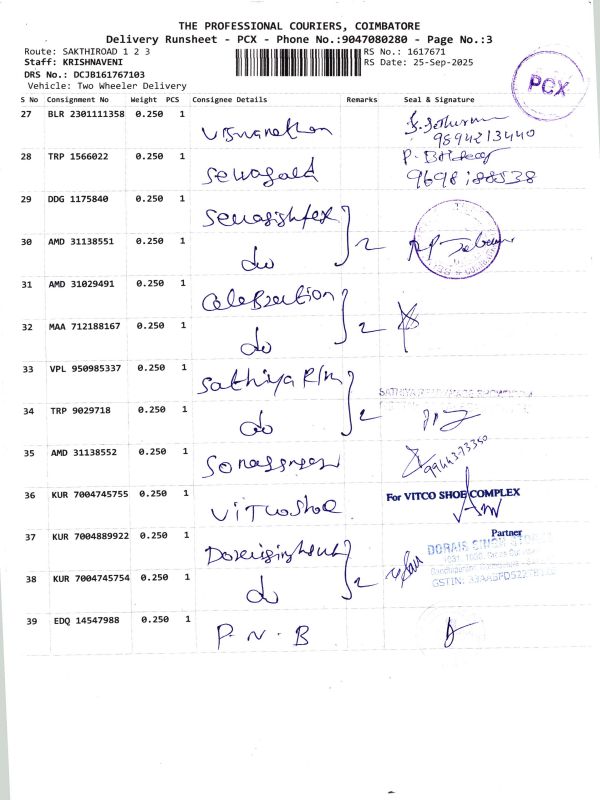 THE PROFESSIONAL COURIERS, COIMBATORE
Delivery Runsheet - PCX - Phone No.:9047080280 - Page No.:3
Route: SAKTHIROAD 1 2 3
RS No.: 1617671
Staff: KRISHNAVENI
RS Date: 25-Sep-2025
DRS No.: DCJB161767103
Vehicle: Two Wheeler Delivery
PCX
S No Consignment No Weight PCS Consignee Details Remarks Seal & Signature
27 BLR 2301111358 0.250 1 Viswanathan
9894213440
28 TRP 1566022 0.250 1
9698188538
29 DDG 1175840 0.250 1
30 AMD 31138551 0.250 1 do 2
31 AMD 31029491 0.250 1 Celebration
32 MAA 712188167 0.250 1 do 2
33 VPL 950985337 0.250 1 Sathiya
34 TRP 9029718 0.250 1 do 2
35 AMD 31138552 0.250 1
99443-73350
36 KUR 7004745755 0.250 1 Vitcoshoe
For VITCO SHOE COMPLEX
Partner
37 KUR 7004889922 0.250 1
DORAIS SINGH
38 KUR 7004745754 0.250 1 do 2
GSTIN:
39 EDQ 14547988 0.250 1 P.N.B